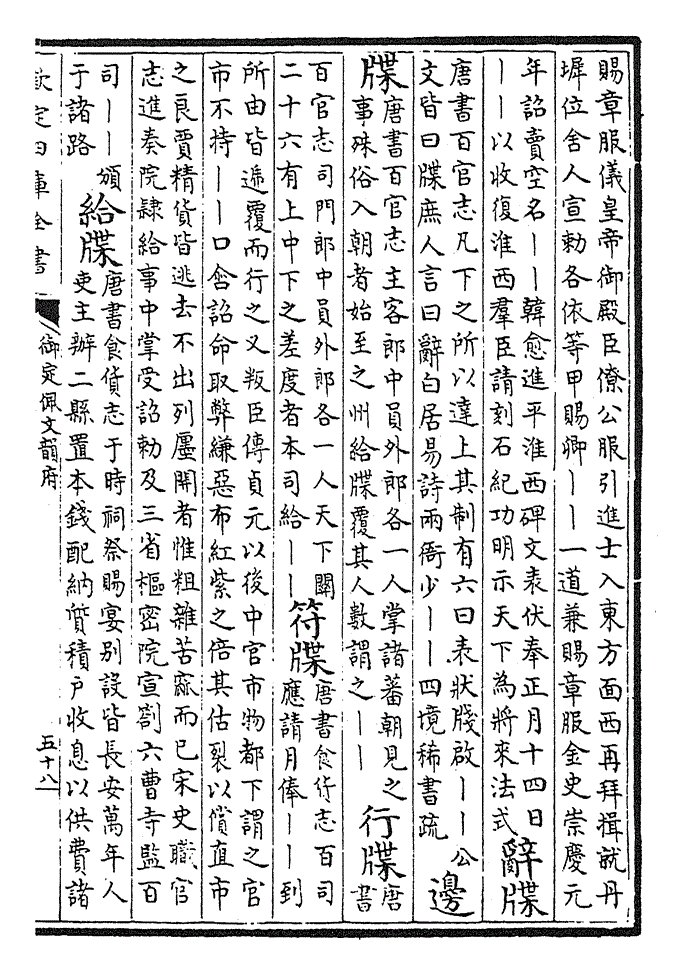 賜章服儀皇帝御殿臣僚公服引進士入東方面西再拜揖就丹
墀位舍人宣勅各依等甲賜卿丨丨一道兼賜章服金史崇慶元
年詔賣空名丨丨韓愈進平淮西碑文表伏奉正月十四日
丨丨以收復淮西羣臣請刻石紀功明示天下為將來法式
辭牒
唐書百官志凡下之所以達上其制有六曰表狀牋啟丨丨公
文皆曰牒庶人言曰辭白居易詩兩衙少丨丨四境稀書疏
邊
牒
唐書百官志主客郎中員外郎各一人掌諸蕃朝見之
事殊俗入朝者始至之州給牒覆其人數謂之丨丨
行牒
唐
書
百官志司門郎中員外郎各一人天下關
二十六有上中下之差度者本司給丨丨
符牒
唐書食貨志百司
應請月俸丨丨到
所由皆遞覆而行之又叛臣傳貞元以後中官市物都下謂之官
市不持丨丨口含詔命取弊縑惡布紅紫之倍其估裂以償直市
之良賈精貨皆逃去不出列廛開者惟粗雜苦窳而已宋史職官
志進奏院隸給事中掌受詔勅及三省樞密院宣劄六曹寺監百
司丨丨頒
于諸路
給牒
唐書食貨志于時祠祭賜宴別設皆長安萬年人
吏主辦二縣置本錢配納質積戶收息以供費諸
欽定四庫全書
御定佩文韻府
五十八